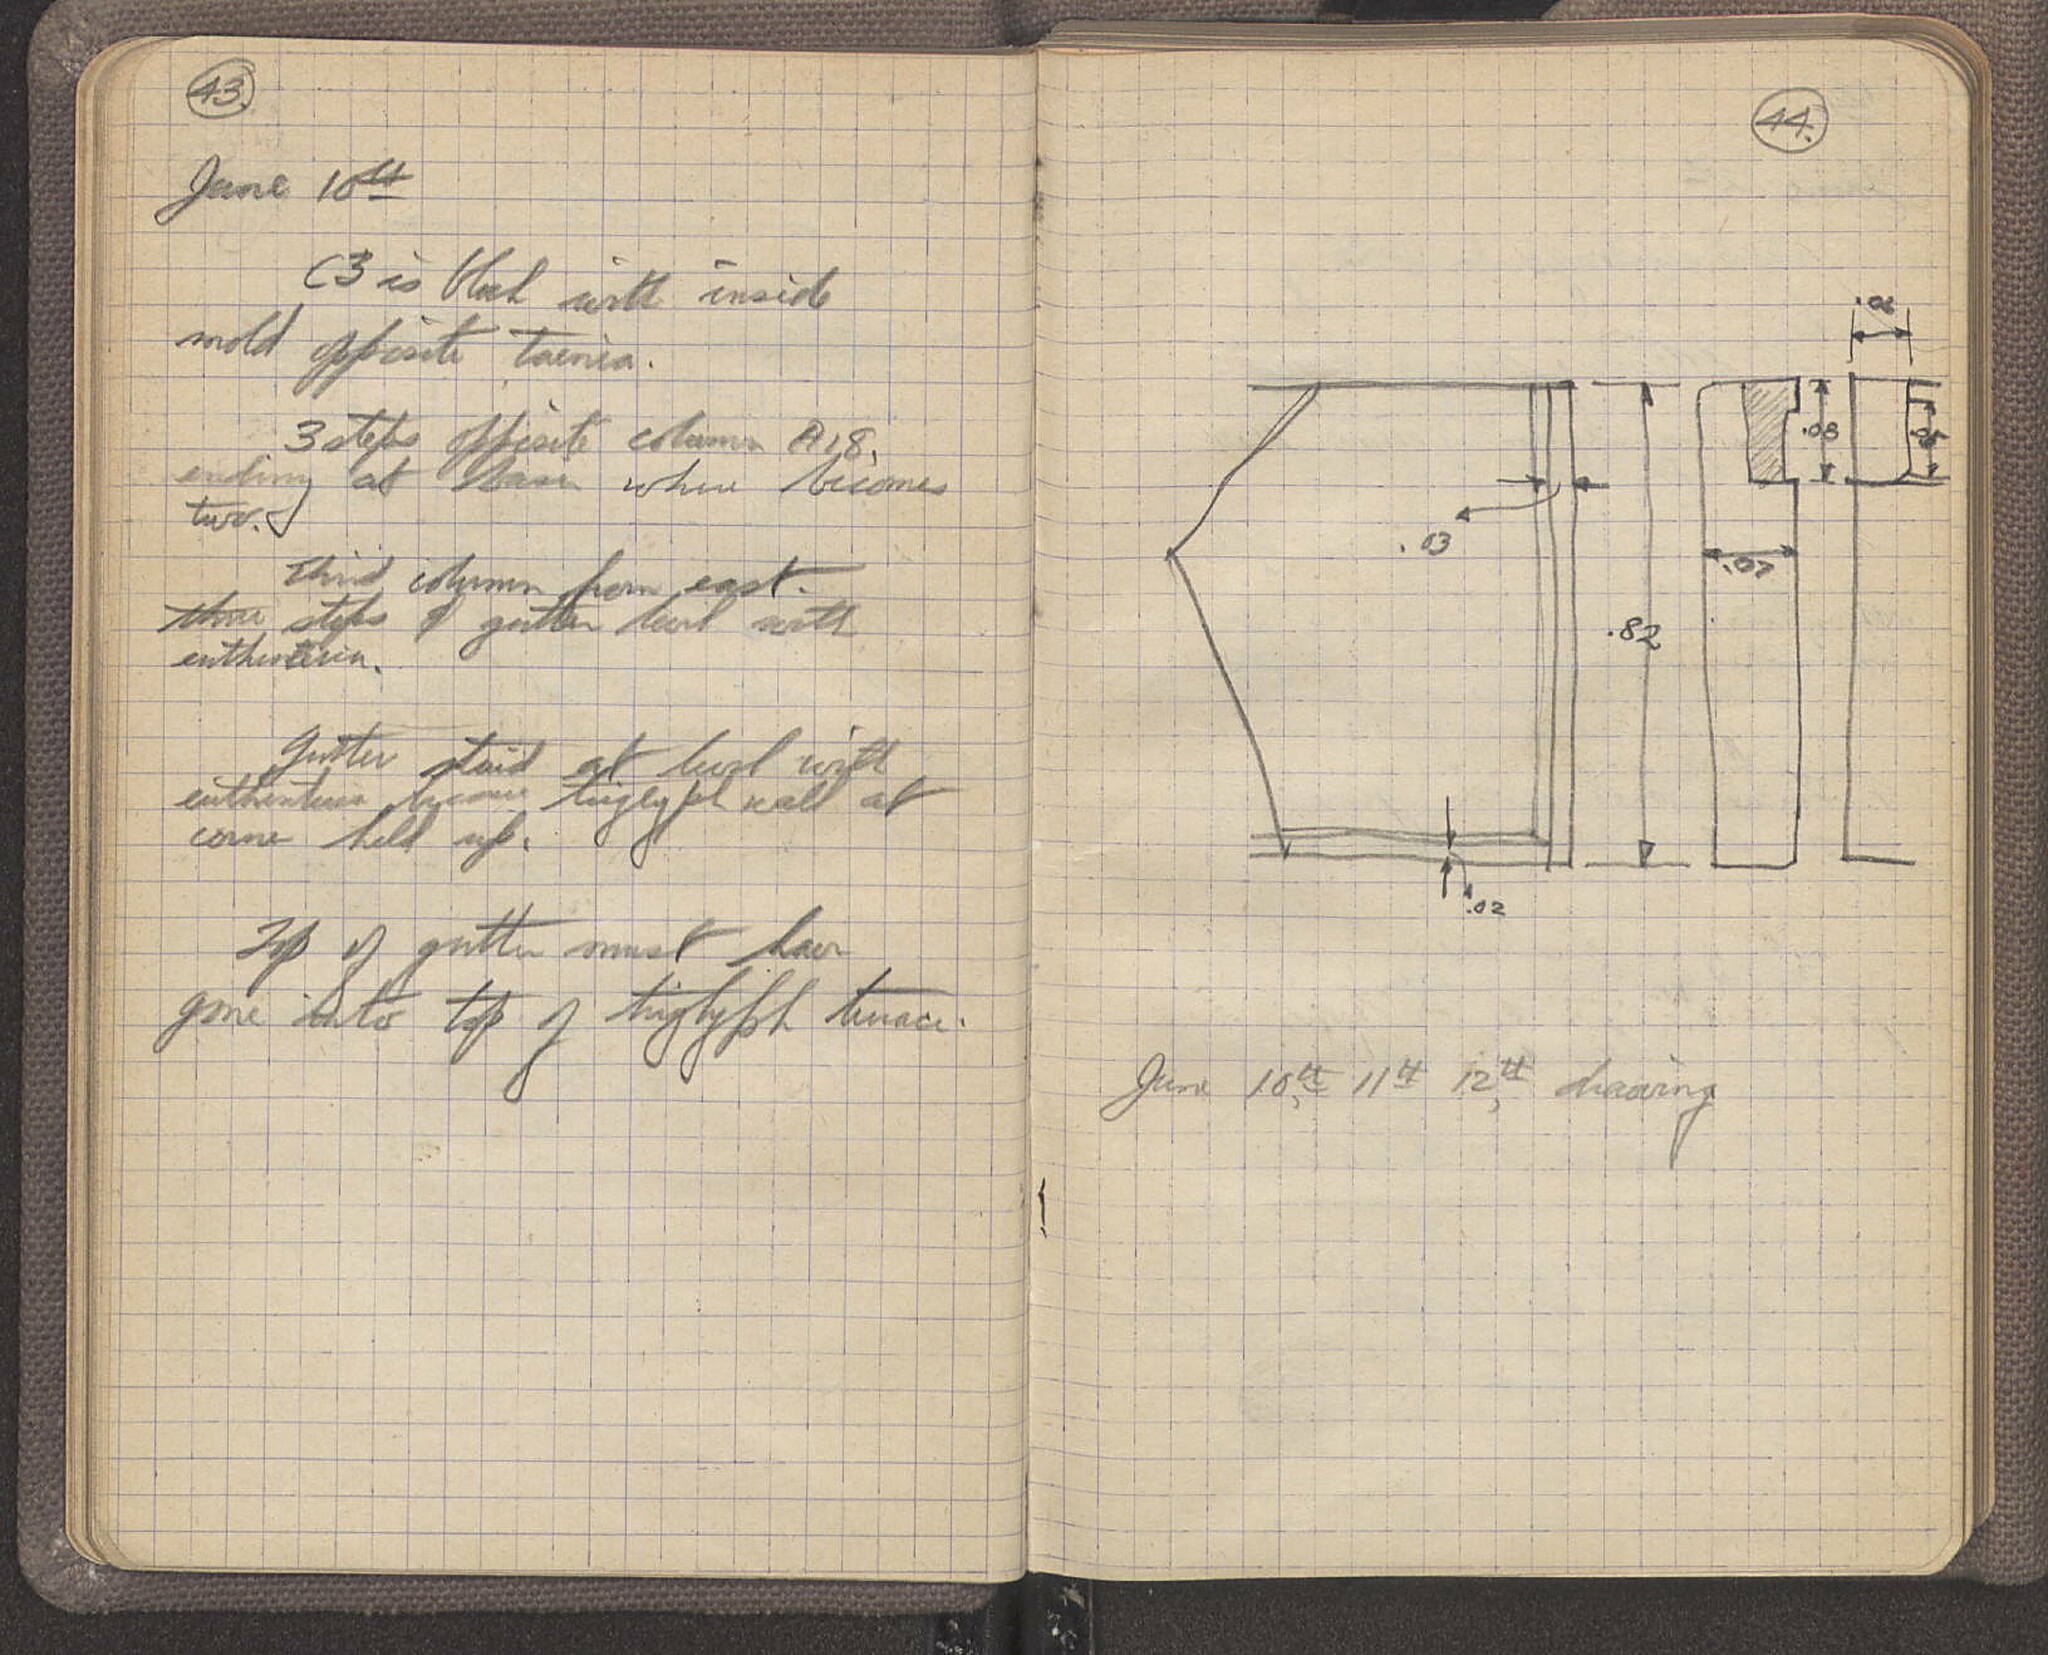 43.
June 10th
C3 is block with inside
mold opposite taenia.
3 steps opposite column A18,
ending at basin where becomes
two.
Third column from east.
three steps & gutter level with
euthenteria.
Gutter staid at level with
euthenteria because triglyph wall at
corner held up.
Top of gutter must have
gone into top of triglyph terrace.
44.
.08
.06
.03
.07
.82
.02
June 10,th 11th 12,th drawing